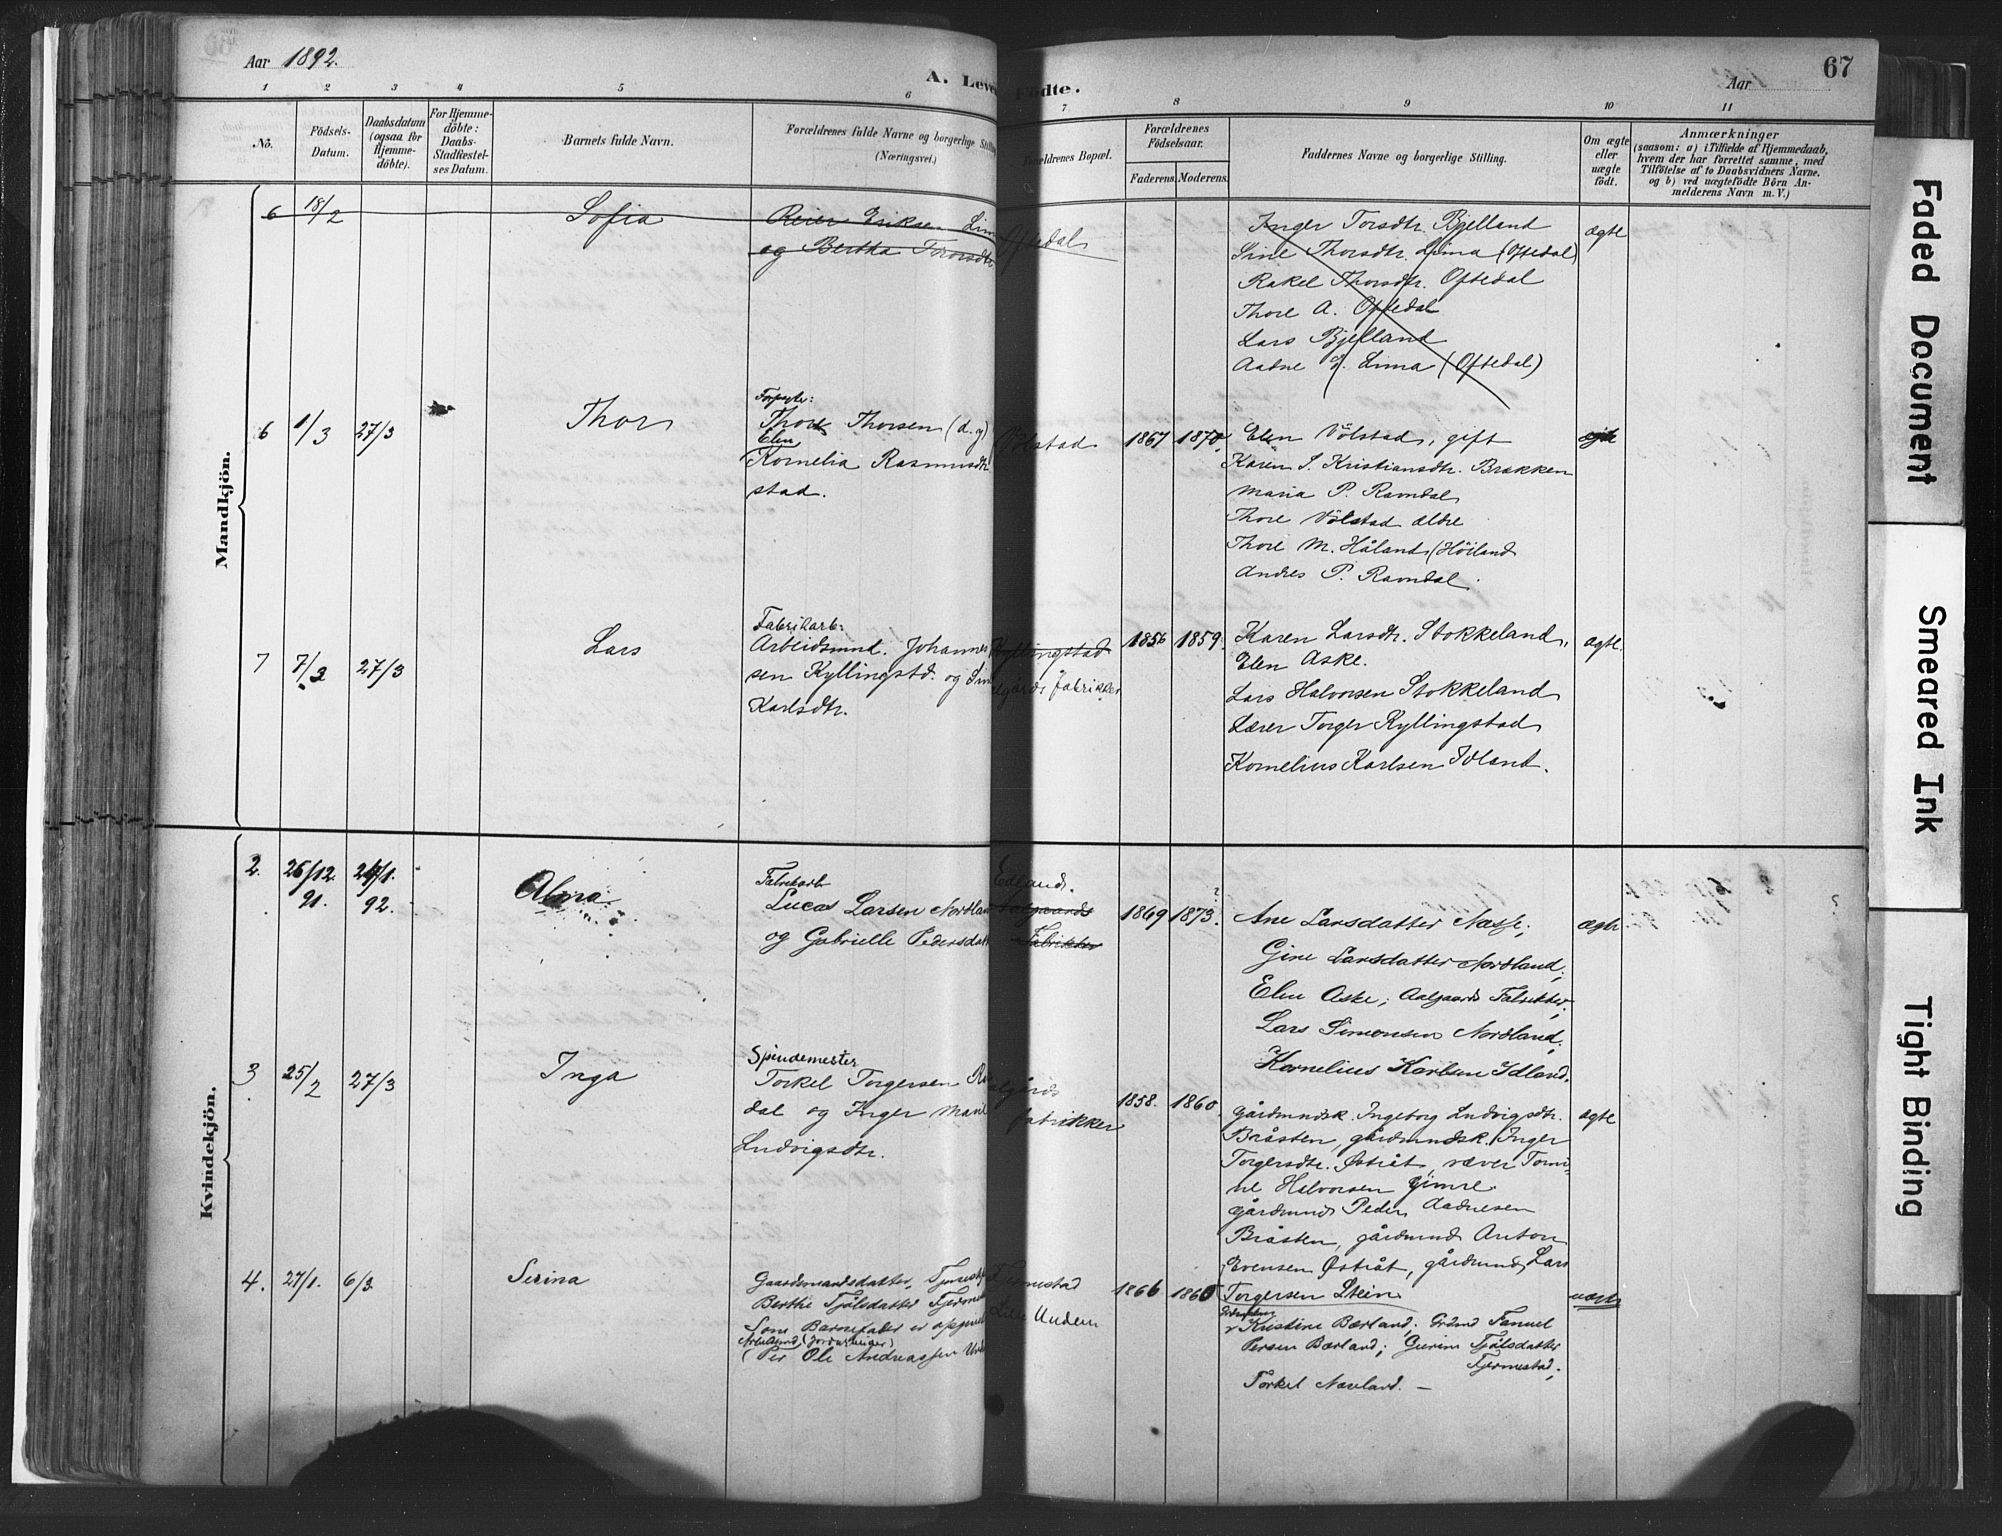 Aar 1892.
A. Leve
födte.
Aar
67
1 2 3 4 5 6 7 8 9 10 11
Nō.
Födsels-
Datum.
Daabsdatum
(ogsaa for
Hjemme-
döbte).
For Hjemme-
döbte:
Daabs-
Stadfæstel-
ses Datum.
Barnets fulde Navn.
Forældrenes fulde Navne og borgerlige Stilling
(Næringsvei.)
Forældrenes Bopæl.
Forældrenes
Födselsaar.
Faderens. Moderens.
Faddernes Navne og borgerlige Stilling.
Om ægte
eller
uægte
født.
Anmærkninger
(saasom: a) i Tilfælde af Hjemmedaab,
hvem der har forrettet samme, med
Tilföielse af to Daabsvidners Navne,
og b) ved uægtefödte Börn An-
melderens Navn m. V.)
Mandkjön.
6 18/2 Sofia
Reier Eriksen Lim
og Bertha Torsdtr
Oftedal
Inger Torsdtr. Bjelland
Sine Thorsdtr. Lima (Oftedal)
Rakel Thorsdtr. Oftedal
Thore A. Oftedal
Lars Bjelland
Aadne G. Lima (Oftedal)
ægte
6 1/3 27/3 Thor
Forpagter:
Thore Thorsen (d. y)
Elen
Kornelia Rasmusdtr
stad.
Völstad
1867 1870
Elen Völstad, gift
Karen S. Kristiansdtr. Brekken
Maria P. Ramdal
Thore Völstad ældre
Thore M. Håland (Höiland
Andres P. Ramdal.
ægte
7 7/2 27/3 Lars
Fabrikarb:
Arbeidsmd. Johannes
sen Kyllingstd. og Sine
Karlsdtr.
Kyllingstad
lgårds fabrikker
1856 1859
Karen Larsdtr. Stokkeland,
Elen Aske.
Lars Halvorsen Stokkeland
Lærer Torger Kyllingstad
Kornelius Karlsen Idland.
ægte
Kvindekjön.
2. 26/12 91. 24/1. 92. Alma.
Fabrikarb
Lucas Larsen Nordlan
og Gabrielle Pedersdatt
Edland.
Aalgaards
Fabrikker
1869 1873 ?
Ane Larsdatter Næsse;
Gine Larsdatter Nordland;
Elen Aske; Aalgaards Fabrikker;
Lars Simonsen Nordland;
Kornelius Karlsen Idland.
ægte
3 25/2 27/3 Inga
Spindemester
Torkel Torgersen Ra
dal og Inger Marie
Ludvigsdtr.
algårds
fabrikker
1858. 1860.
gårdmndsk. Ingeborg Ludvigsdtr.
Bråsten, gårdmndsk. Inger
Torgersdtr. Østråt, væver Tomi-
ne Halvorsen Gimre.
gårdmnd Peder Aadnesen
Bråsten, gårdmnd Anton
Evensen Østråt, gårdmnd Lars
Torgersen Stein
ægte
4. 27/1. 6/3. Serina
Gaardmandsdatter,
Berthe Tjölsdatter Fjerme
Som Barnefader er opgivet
Arbeidsmd
(Per Ole Andreassen Und
Fjermestad
Lille Undem
1866 1860
Kristine Bærland; Grdmd Samuel
Persen Bærland; Gurine Tjölsdatter
Fjermestad;
Torkel Næsland. —
uægte
Faded Document
Smeared Ink
Tight Binding